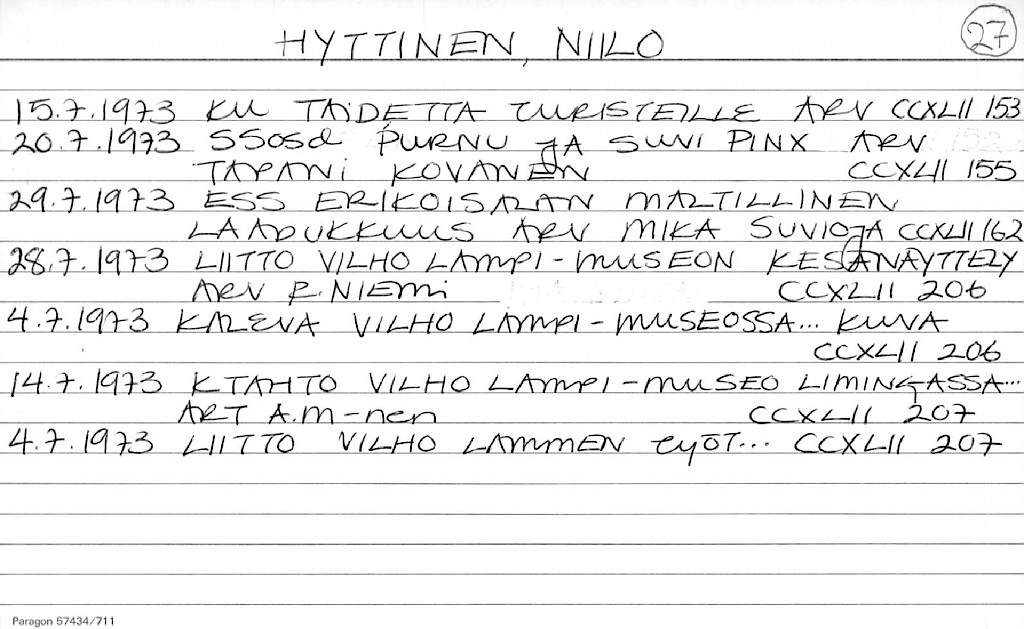 HYTTINEN, NIILO
27
15.7.1973 KU TAIDETTA TURISTEILLE ARV CCXLII 153
20.7.1973 SSOSD PURNU JA SUVI PINX ARV
TAPANI KOVANEN CCXLII 155
29.7.1973 ESS ERIKOISALAN MALTILLINEN
LAADUKKUUS ARV MIKA SUVIOJA CCXLII 162
28.7.1973 LIITTO VILHO LAMPI-MUSEON KESÄNÄYTTELY
ARV R. NIEMI CCXLII 206
4.7.1973 KALEVA VILHO LAMPI-MUSEOSSA... KUVA
CCXLII 206
14.7.1973 KTAHTO VILHO LAMPI-MUSEO LIMINGASSA...
ART A.M-nen CCXLII 207
4.7.1973 LIITTO VILHO LAMMEN TYÖT... CCXLII 207
Paragon 57434/711